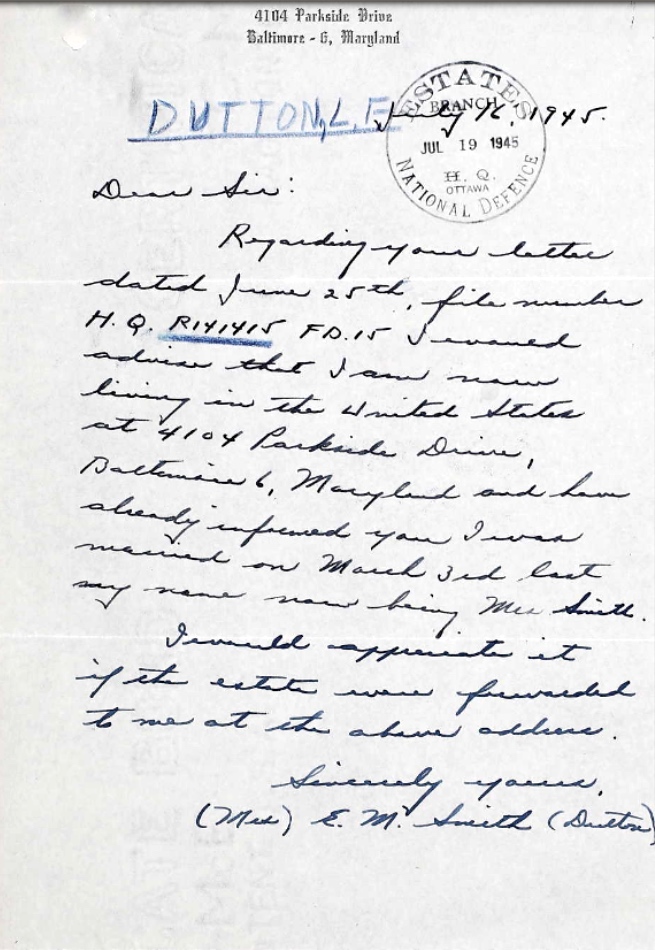 4104 Parkside Drive
Baltimore - 6, Maryland
DUTTON, L.E.
July 16, 1945.
ESTATES
BRANCH
JUL 19 1945
H. Q.
OTTAWA
NATIONAL DEFENCE
Dear Sir:
Regarding your letter
dated June 25th, file number
H.Q. R141415 FD.15 I would
advise that I am now
living in the United States
at 4104 Parkside Drive,
Baltimore 6, Maryland and have
already informed you I was
married on March 3rd last
my name now being Mrs Smith.
I would appreciate it
if the estate were forwarded
to me at the above address.
Sincerely yours,
(Mrs) E. M. Smith (Dutton)